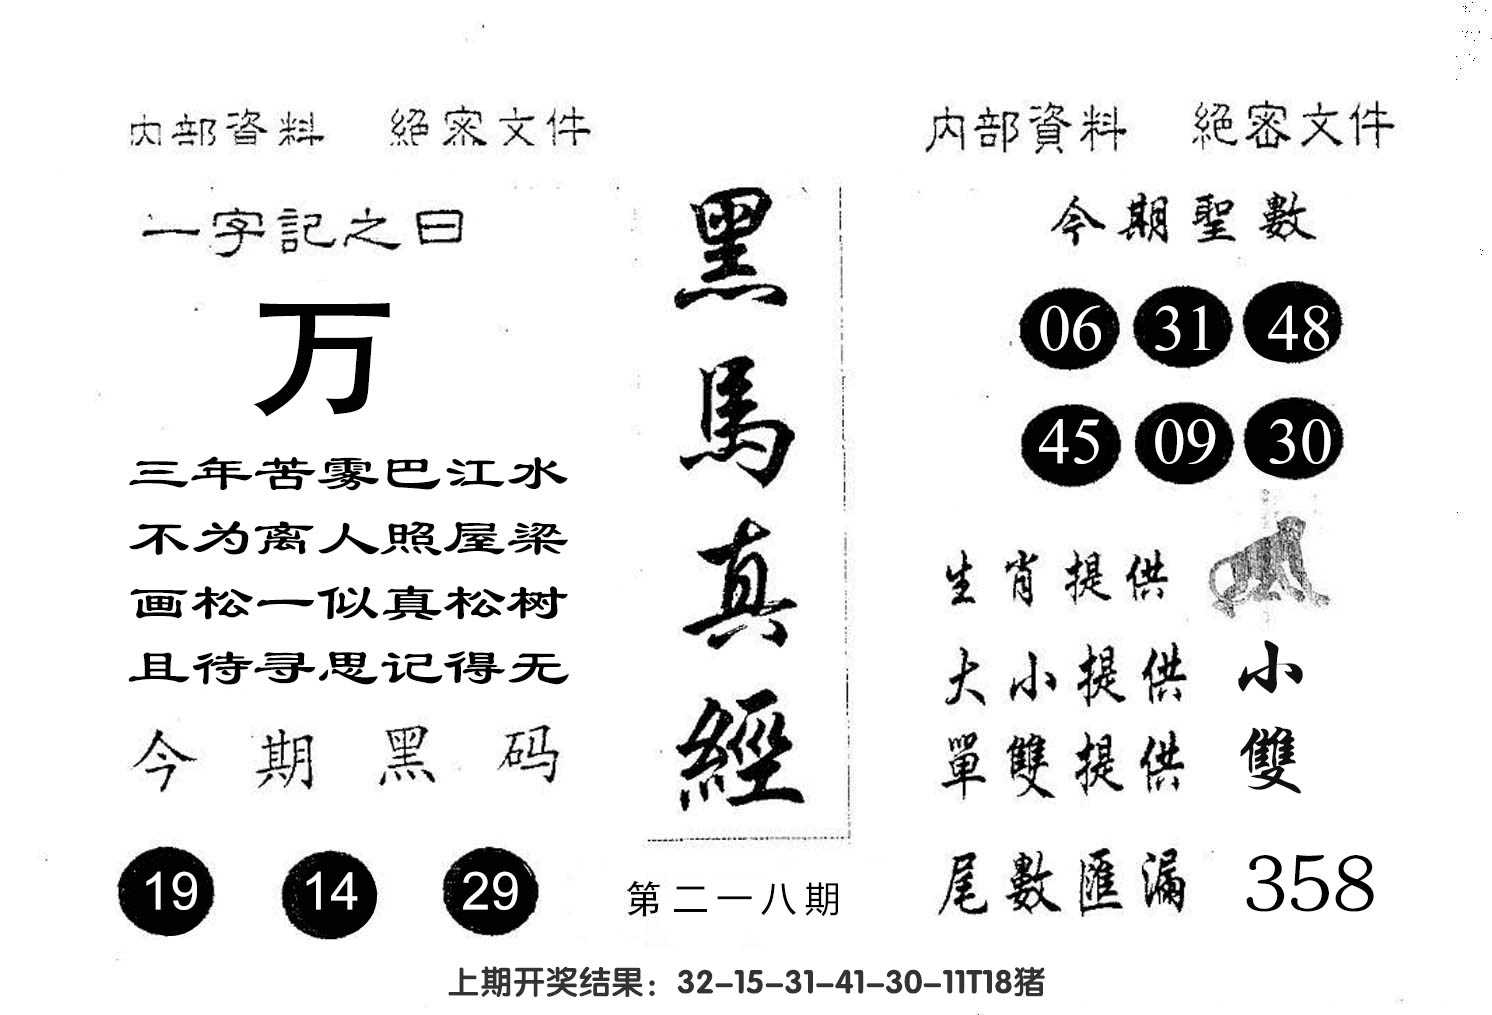 内部資料 絕密文件
一字記之曰
万
三年苦雾巴江水
不为离人照屋梁
画松一似真松树
且待寻思记得无
今期黑码
19 14 29
黑馬真經
第二一八期
内部資料 絕密文件
今期聖數
06 31 48
45 09 30
生肖提供
大小提供 小
單雙提供 雙
尾數匯漏 358
上期开奖结果：32-15-31-41-30-11T18猪